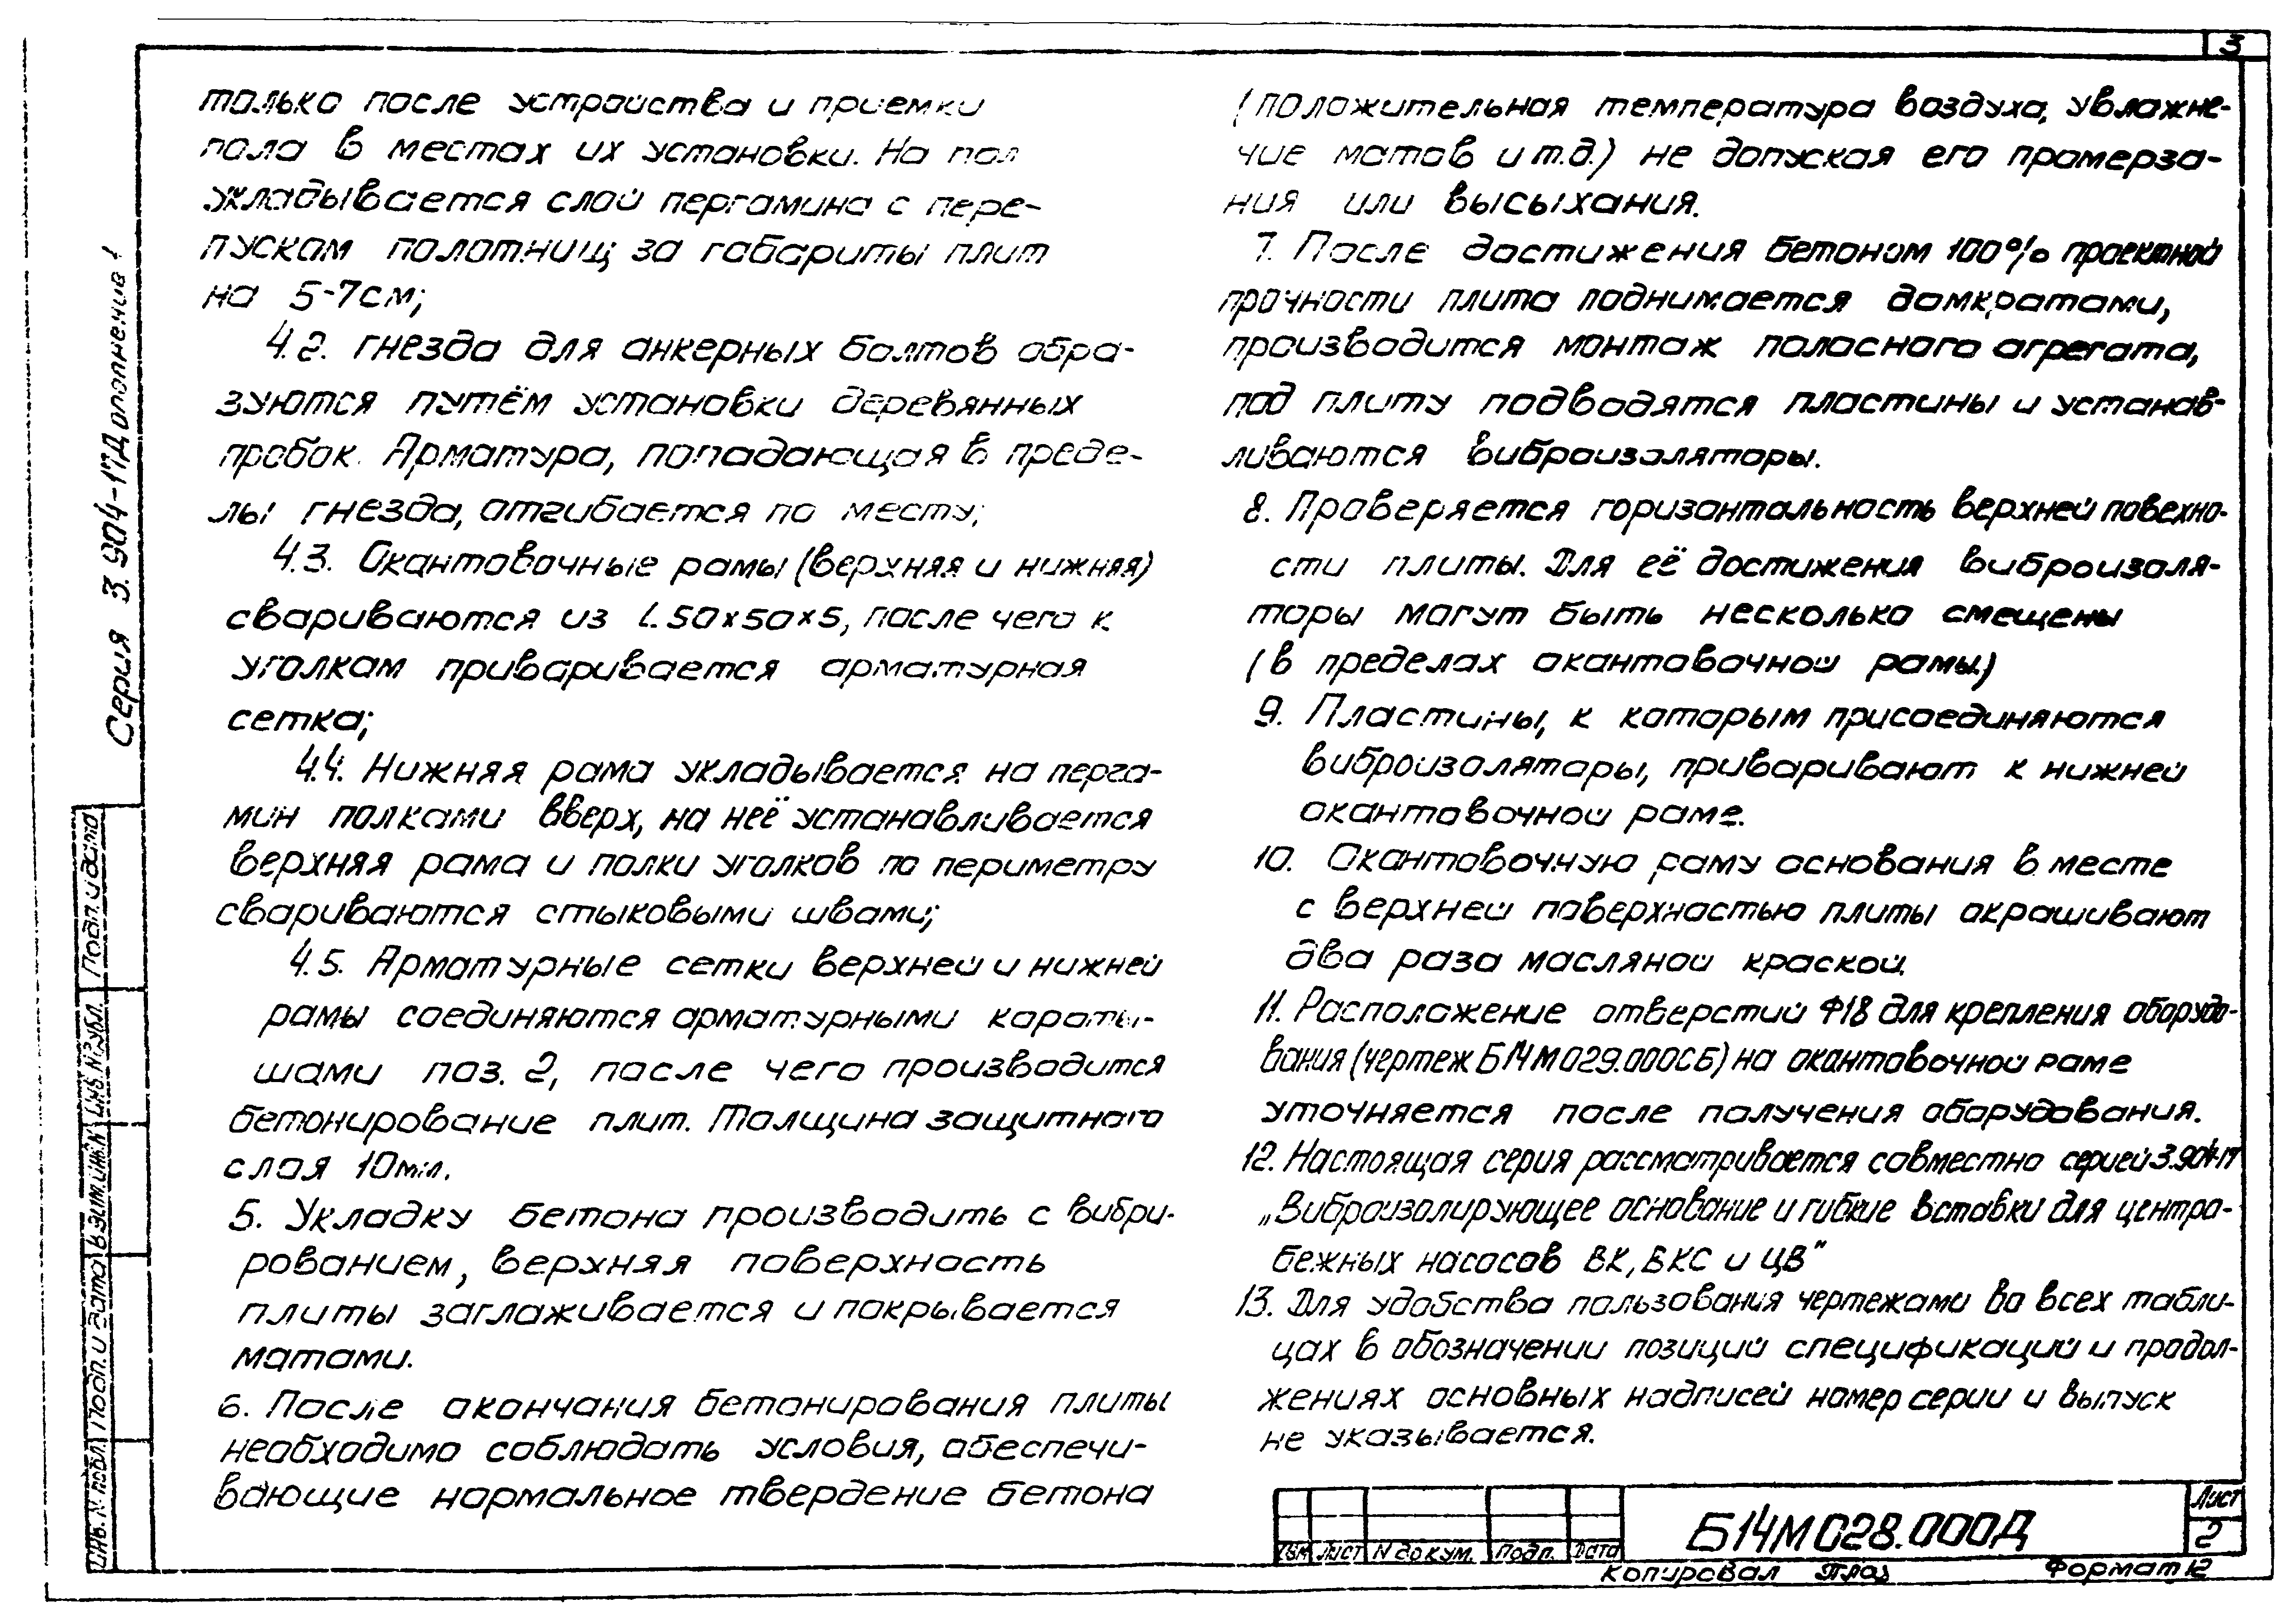 3
только после устройства и приемки
пола в местах их установки. На пол
укладывается слой пергамина с пере-
пуском полотнищ за габариты плит
на 5-7см;
4.2. гнезда для анкерных болтов обра-
зуются путём установки деревянных
пробок. Арматура, попадающая в преде-
лы гнезда, отгибается по месту;
4.3. Окантовочные рамы (верхняя и нижняя)
свариваются из L.50х50х5, после чего к
уголкам приваривается арматурная
сетка;
4.4. Нижняя рама укладывается на перга-
мин полками вверх, на неё устанавливается
верхняя рама и полки уголков по периметру
свариваются стыковыми швами;
4.5. Арматурные сетки верхней и нижней
рамы соединяются арматурными короты-
шами поз. 2, после чего производится
бетонирование плит. Толщина защитного
слоя 10мм.
5. Укладку бетона производить с вибри-
рованием, верхняя поверхность
плиты заглаживается и покрывается
матами.
6. После окончания бетонирования плиты
необходимо соблюдать условия, обеспечи-
вающие нормальное твердение бетона
(положительная температура воздуха, увлажне-
ние матов и т.д.) не допуская его промерза-
ния или высыхания.
7. После достижения бетоном 100% проектной
прочности плита поднимается домкратами,
производится монтаж полосного агрегата,
под плиту подводятся пластины и устанав-
ливаются виброизоляторы.
8. Проверяется горизонтальность верхней повехно-
сти плиты. Для её достижения виброизоля-
торы могут быть несколько смещены
(в пределах окантовочной рамы.)
9. Пластины, к которым присоединяются
виброизоляторы, приваривают к нижней
окантовочной раме.
10. Окантовочную раму основания в месте
с верхней поверхностью плиты окрашивают
два раза масляной краской.
11. Расположение отверстий Ф18 для крепления оборудо-
вания (чертеж Б14М029.000СБ) на окантовочной раме
уточняется после получения оборудования.
12. Настоящая серия рассматривается совместно серией 3.904-17
„Виброизолирующее основание и гибкие вставки для центро-
бежных насосов ВК, ВКС и ЦВ"
13. Для удобства пользования чертежами во всех табли-
цах в обозначении позиций спецификаций и продол-
жениях основных надписей номер серии и выпуск
не указывается.
Серия 3.904-17Дополнение 1
Подп. и дата
Инв. №дубл.
Взам. инв.N
Подп. и дата
Инв. N подл.
Изм Лист N докум. Подп. Дата
Б14М028.000Д
Лист
2
Копировал
Формат 12